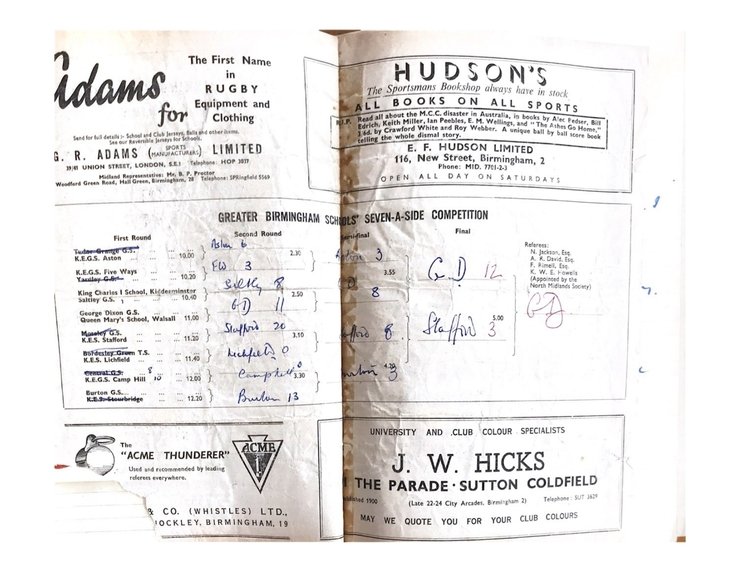 Adams
for
The First Name
in
RUGBY
Equipment and
Clothing
Send for full details :- School and Club Jerseys, Balls and other items.
See our Reversible Jerseys for Schools.
G. R. ADAMS (SPORTS MANUFACTURERS) LIMITED
39/41 UNION STREET, LONDON, S.E.1 Telephone: HOP 3077
Midland Representative: Mr. B. P. Proctor
Woodford Green Road, Hall Green, Birmingham, 28 Telephone: SPRingfield 5569
HUDSON'S
The Sportsmans Bookshop always have in stock
ALL BOOKS ON ALL SPORTS
R.I.P. Read all about the M.C.C. disaster in Australia, in books by Alec Bedser, Bill
Edrich, Keith Miller, Ian Peebles, E. M. Wellings, and "The Ashes Go Home,"
3/6d. by Crawford White and Roy Webber. A unique ball by ball score book
telling the whole dismal story.
E. F. HUDSON LIMITED
116, New Street, Birmingham, 2
Phone: MID. 7701-2-3
OPEN ALL DAY ON SATURDAYS
GREATER BIRMINGHAM SCHOOLS' SEVEN-A-SIDE COMPETITION
First Round
Second Round
Semi-final
Final
Tudor Grange G.S.
K.E.G.S. Aston ... ... ... 10.00
K.E.G.S. Five Ways
Yardley G.S. ... ... ... 10.20
King Charles I School, Kidderminster
Saltley G.S. ... ... ... 10.40
George Dixon G.S.
Queen Mary's School, Walsall 11.00
Moseley G.S.
K.E.S. Stafford ... ... 11.20
Bordesley Green T.S.
K.E.S. Lichfield ... ... 11.40
Central G.S. 8
K.E.G.S. Camp Hill 10 ... 12.00
Burton G.S.
K.E.S. Stourbridge ... ... 12.20
Aston 6
2.30
FW 3
Saltley 8
2.50
GD 11
Stafford 20
3.10
Lichfield 0
Camphill 0
3.30
Burton 13
Aston 3
3.55
GD 8
Stafford 8
4.20
Burton 3
GD 12
5.00
Stafford 3
GD
Referees:
N. Jackson, Esq.
A. K. David, Esq.
F. Rimell, Esq.
K. W. E. Howells
(Appointed by the
North Midlands Society)
The
"ACME THUNDERER"
Used and recommended by leading
referees everywhere.
ACME
& CO. (WHISTLES) LTD.,
HOCKLEY, BIRMINGHAM, 19
UNIVERSITY AND CLUB COLOUR SPECIALISTS
J. W. HICKS
THE PARADE · SUTTON COLDFIELD
Established 1900 (Late 22-24 City Arcades, Birmingham 2) Telephone: SUT 3629
MAY WE QUOTE YOU FOR YOUR CLUB COLOURS